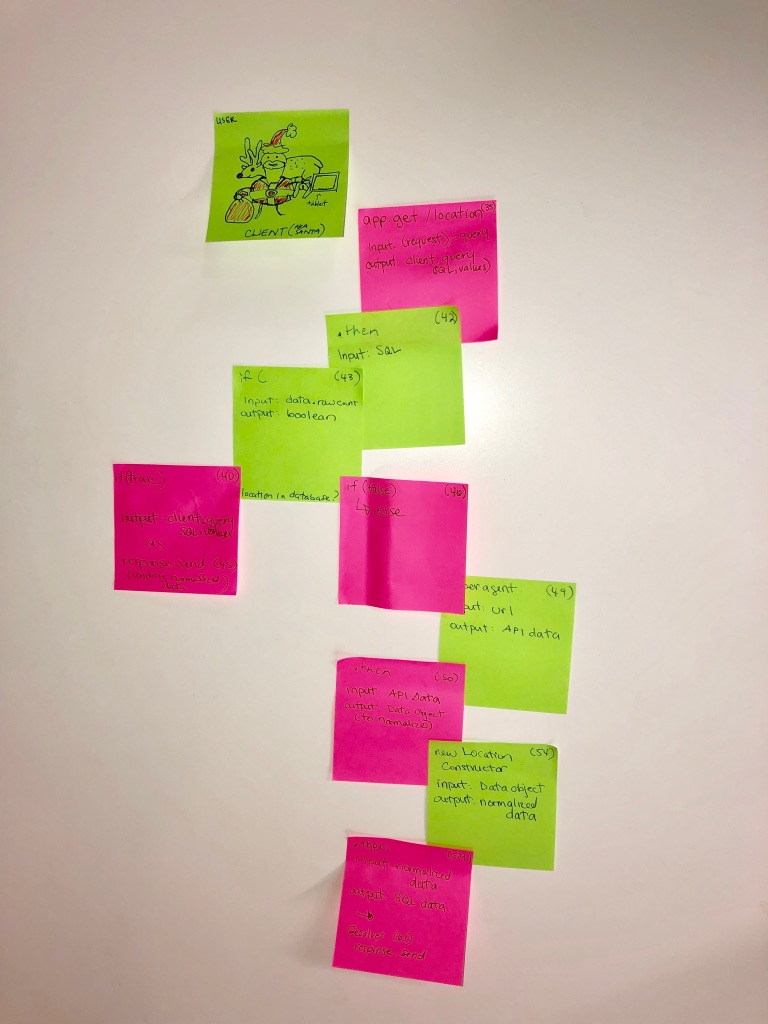 USER
tablet
CLIENT (AKA
SANTA)
app.get /location (35)
input: (request) - query
output: client.query
(SQL, values)
.then (42)
Input: SQL
if ( (43)
input: data.rowCount
output: boolean
location in database?
if (true)
output client.query
SQL, values
response.send (45)
(sending normalized
data)
if (false) (46)
↳ else
peragent (49)
put: url
output: API data
.then (50)
input: API Data
output: Data object
(to normalize)
new Location (54)
Constructor
input: Data object
output: normalized
data
.then
input normalized
data
output SQL data
→
response.send